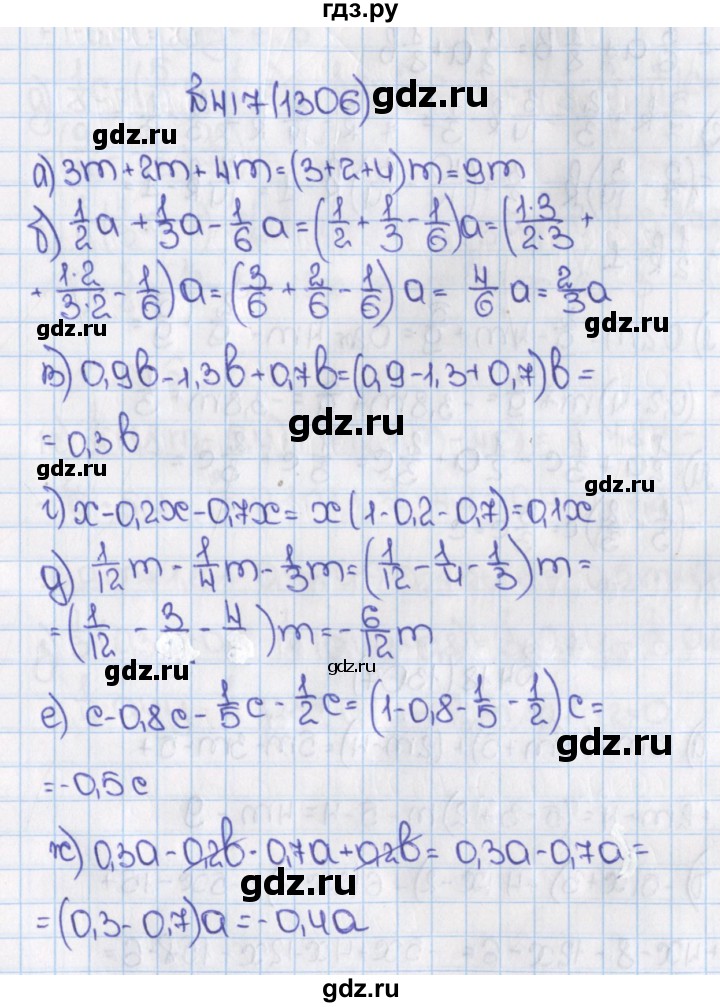 гдз.ру
№417(1306)
gdz.ru
gdz.ru
а) 3m+2m+4m=(3+2+4)m=9m
gdz.ru
б) 1/2 a + 1/3 a - 1/6 a = (1/2 + 1/3 - 1/6)a = (1·3/2·3 +
+ 1·2/3·2 - 1/6)a = (3/6 + 2/6 - 1/6) a = 4/6 a = 2/3 a
gdz.ru
gdz.ru
в) 0,9в-1,3в+0,7в=(0,9-1,3+0,7)в=
gdz.ru
= 0,3в
gdz.ru
gdz.ru
г) x-0,2x-0,7x= x(1-0,2-0,7)=0,1x
д) 1/12 m - 1/4 m - 1/3 m = (1/12 - 1/4 - 1/3) m =
=(1/12 - 3 - 4)m = - 6/12 m
gdz.ru
gdz.ru
е) c-0,8c- 1/5 c - 1/2 c = (1-0,8- 1/5 - 1/2) c =
gdz.ru
=-0,5c
ж) 0,3a-0,2в-0,7a+0,2в= 0,3a-0,7a=
gdz.ru
=(0,3-0,7)a=-0,4a
gdz.ru
gdz.ru